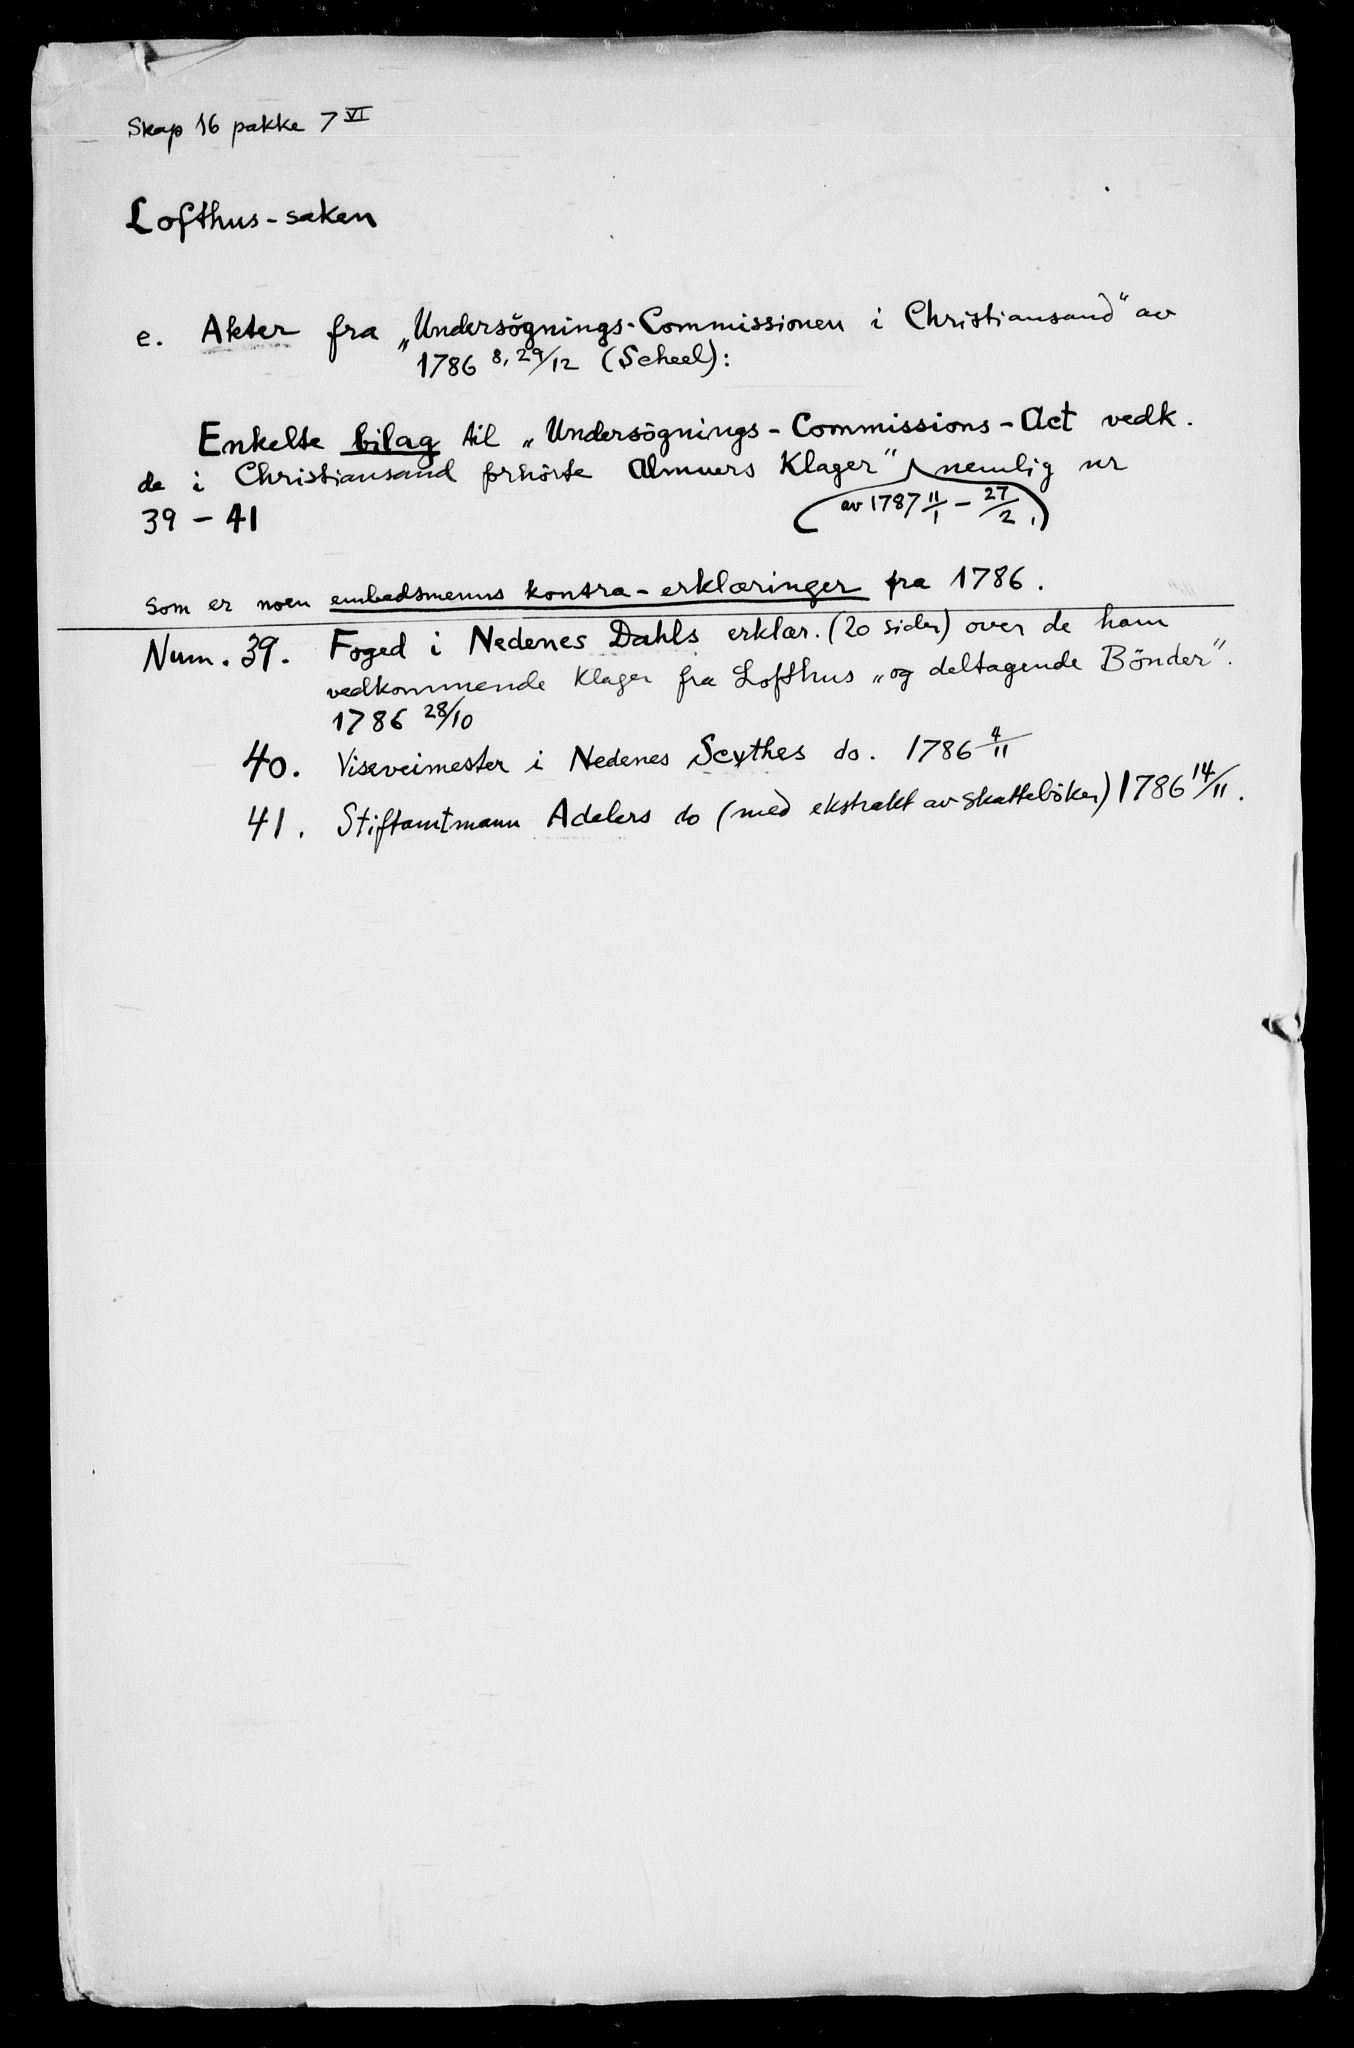 Skap 16 pakke 7 VI
Lofthus-saken
e. Akter fra „Undersögnings-Commissionen i Christiansand" av
1786 8, 29/12 (Scheel):
Enkelte bilag til „Undersögnings-Commissions-Act vedk.
de i Christiansand forhörte Almues Klager" nemlig nr
(av 1787 11/1 – 27/2,)
39 – 41
som er noen embedsmenns kontra-erklæringer fra 1786.
Num. 39. Foged i Nedenes Dahls erklær. (20 sider) over de ham
vedkommende Klager fra Lofthus „og deltagende Bönder".
1786 28/10
40. Viseveimester i Nedenes Scythes do. 1786 4/11
41. Stiftamtmann Adelers do (med ekstrakt av skattebøker) 1786 14/11.